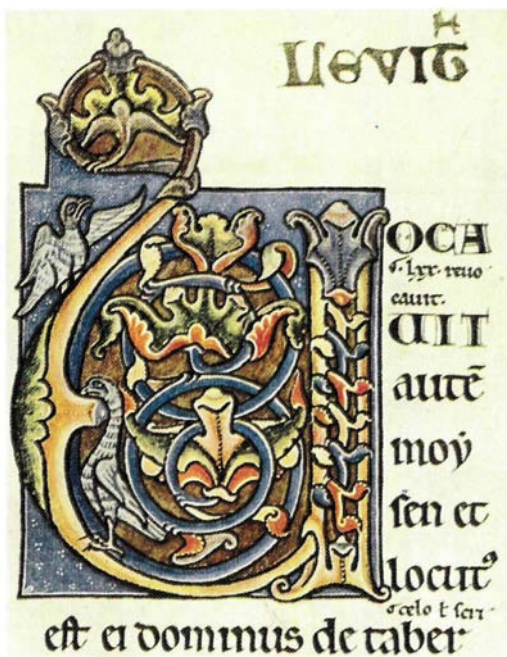 LEVIT
VOCA
lxx· revo
cavit·
UIT
autē
moẏ
sen et
locutꝰ
celo
est ei dominus de taber